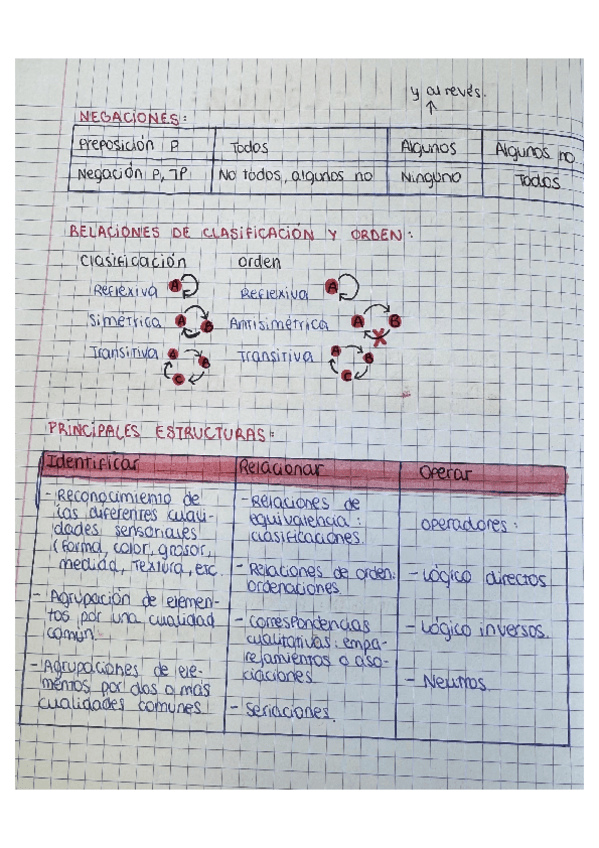 y al revés.
↑
NEGACIONES:
Preposición P Todos Algunos Algunos no
Negación P, ¬P No todos, algunos no Ninguno Todos
RELACIONES DE CLASIFICACIÓN Y ORDEN:
Clasificación orden
Reflexiva A Reflexiva A
Simétrica A B Antisimétrica A B
Transitiva A B C Transitiva A B C
PRINCIPALES ESTRUCTURAS:
Identificar Relacionar Operar
- Reconocimiento de
las diferentes cuali-
dades sensoriales
(forma, color, grosor,
medida, textura, etc.
- Agrupación de elemen-
tos por una cualidad
común.
- Agrupaciones de ele-
mentos por dos o más
cualidades comunes.
- Relaciones de
equivalencia:
clasificaciones.
- Relaciones de orden:
ordenaciones.
- Correspondencias
cualitativas: empa-
rejamientos o aso-
ciaciones.
- Seriaciones.
Operadores:
- Lógico directos
- Lógico inversos.
- Neutros.